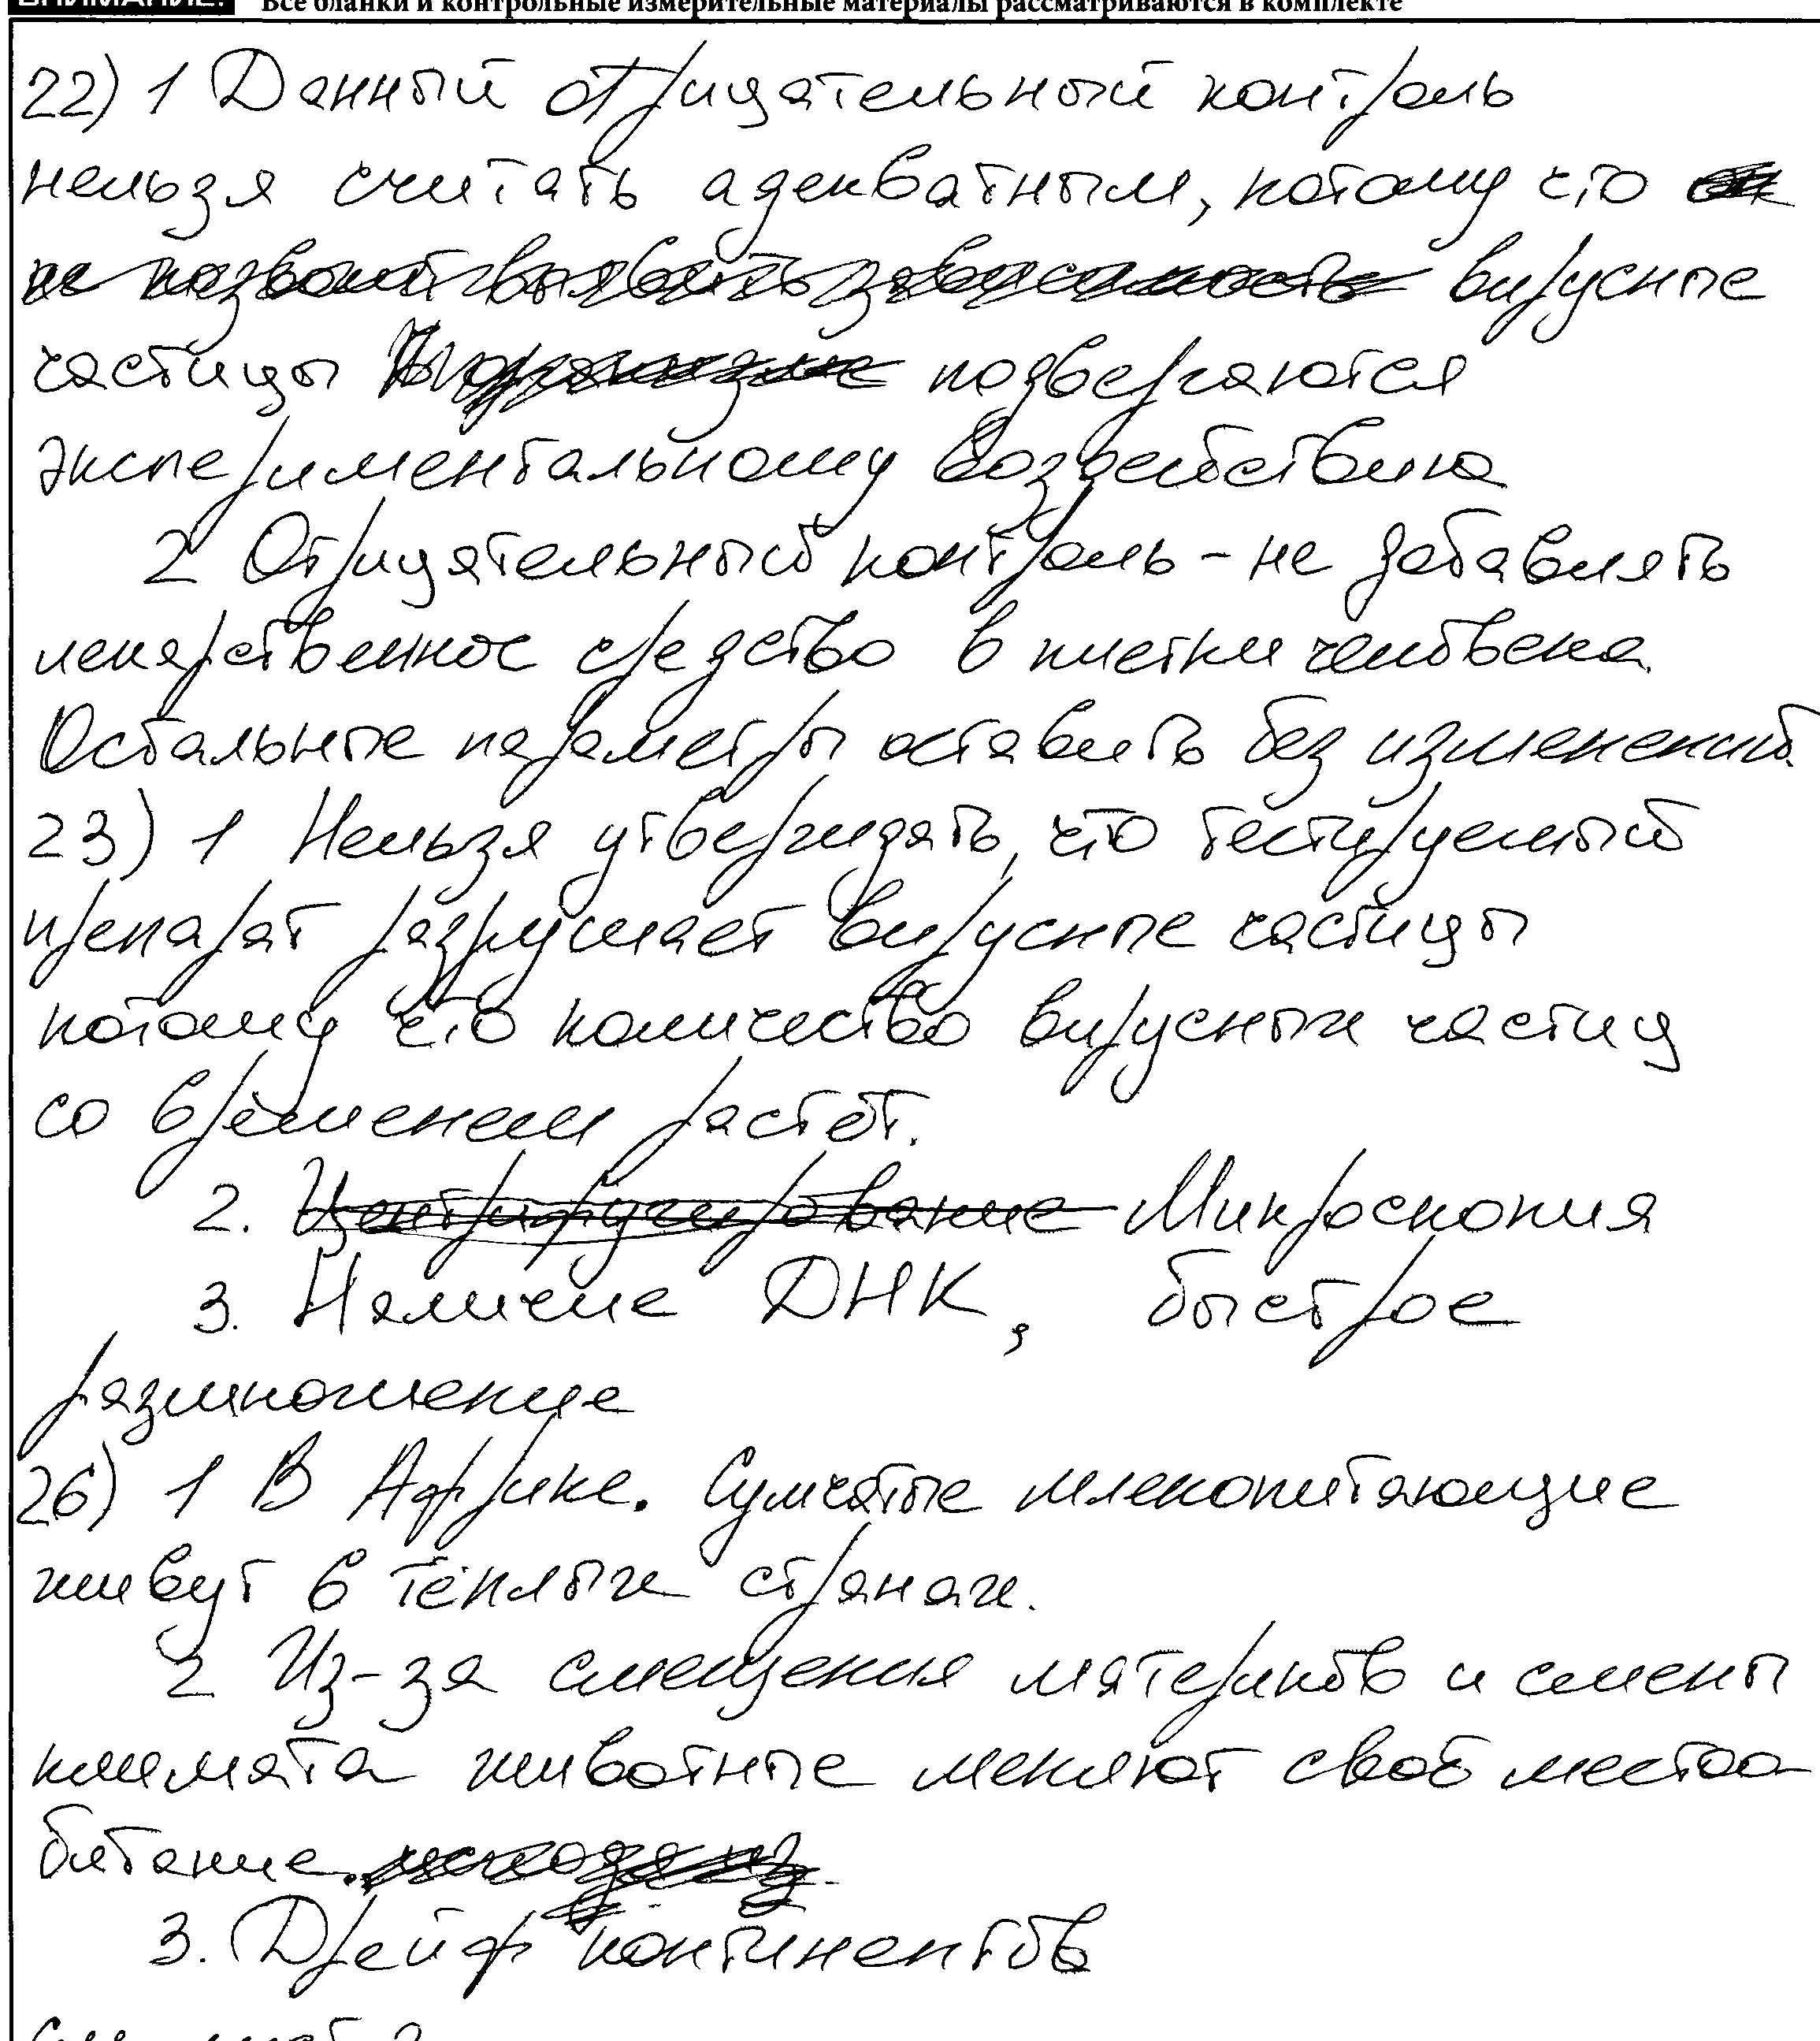 ВНИМАНИЕ! Все бланки и контрольные измерительные материалы рассматриваются в комплекте
22) 1 Данный отрицательный контроль
нельзя считать адекватным, потому что
вирусные
частицы подвергаются
экспериментальному воздействию
2 Отрицательный контроль - не добавлять
лекарственное средство в клетки человека.
Остальные параметры оставить без изменений.
23) 1 Нельзя утверждать, что тестируемый
препарат разрушает вирусные частицы
потому что количество вирусных частиц
со временем растёт.
2. Центрифугирование Микроскопия
3. Наличие ДНК, быстрое
размножение
26) 1 В Африке. Сумчатые млекопитающие
живут в тёплых странах.
2 Из-за смещения материков и смены
климата животные меняют своё местоо-
битание.
3. Дрейф континентов